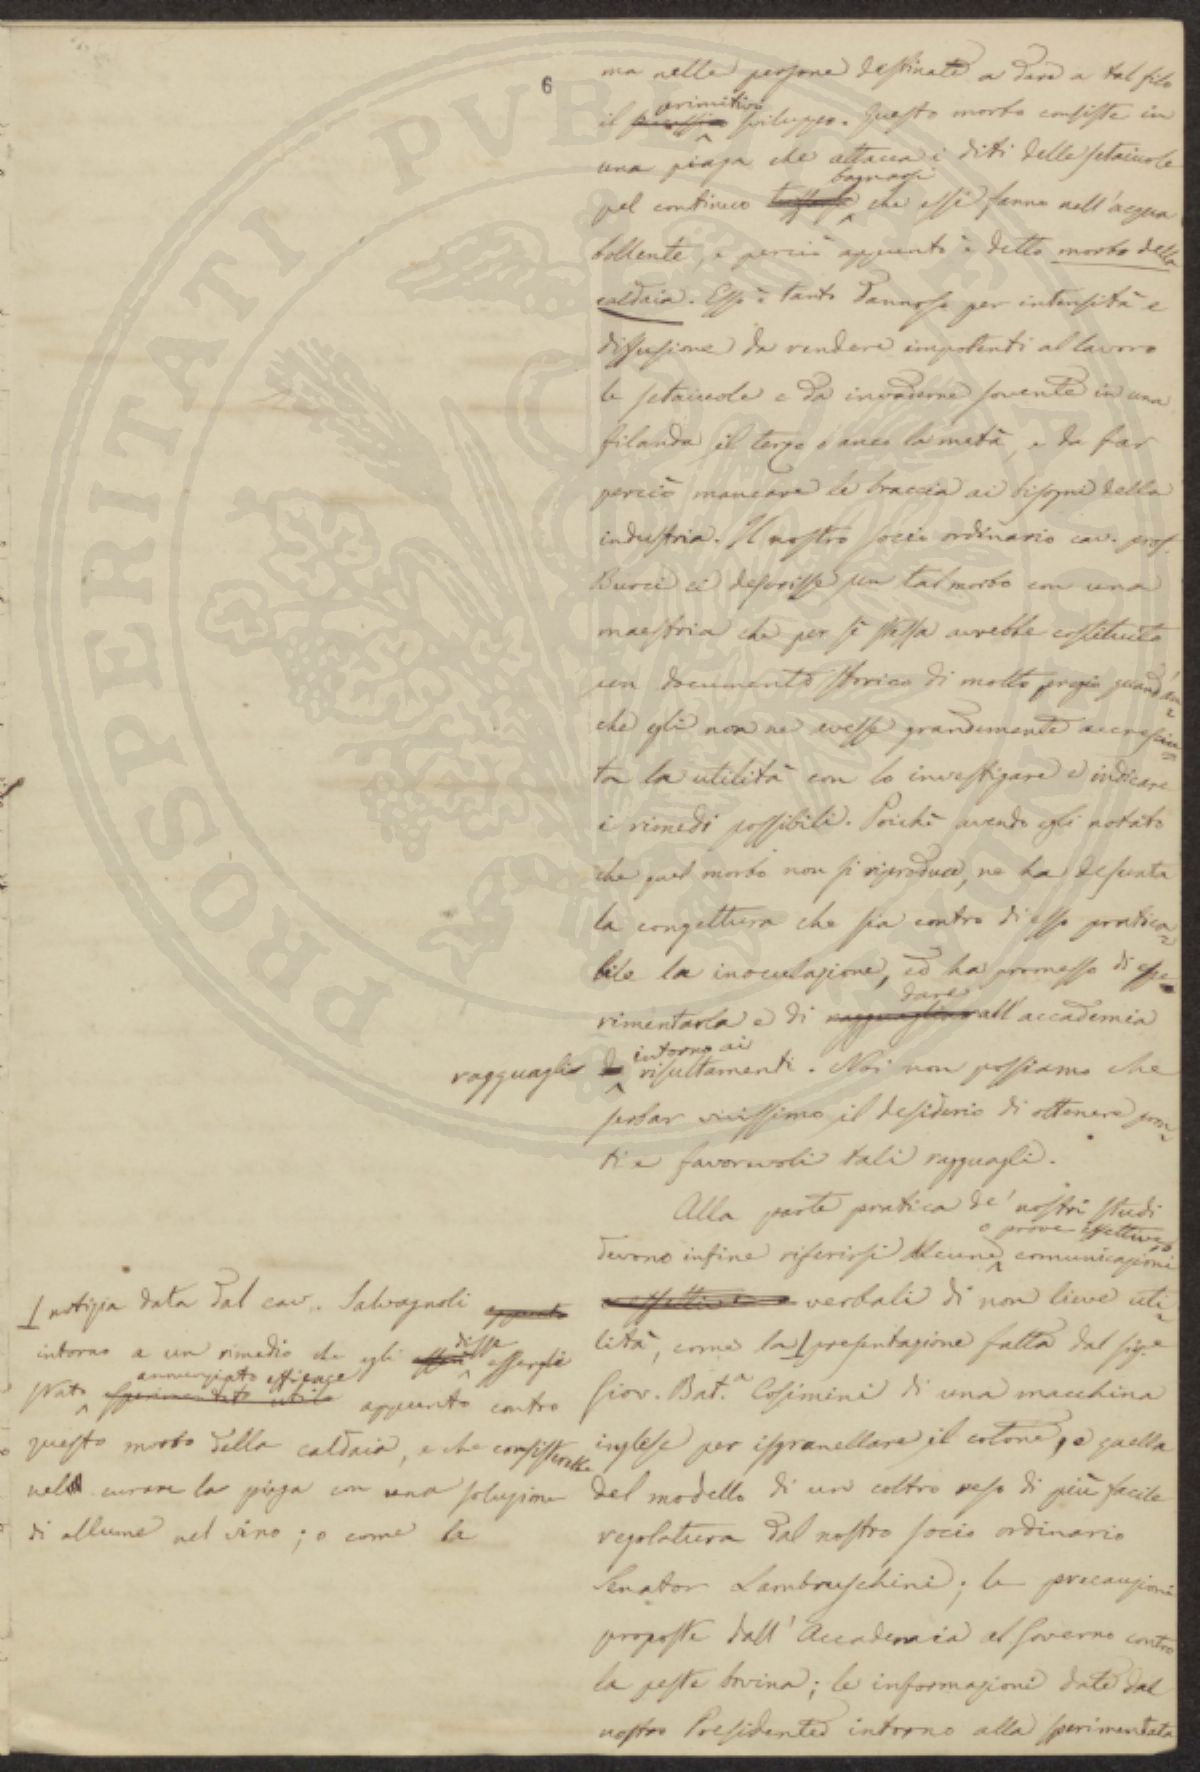 6
ma nelle persone destinate a dare a tal filo
primitivo
il sviluppo. Questo morbo consiste in
una piaga che attacca i diti delle setaiuole
bagnarsi
pel continuo che esse fanno nell'acqua
bollente, e perciò appunto è detto morbo della
caldaia. Esso è tanto dannoso per intensità e
diffusione da rendere impotenti al lavoro
le setaiuole e da invaderne sovente in una
filanda il terzo o anco la metà, e da far
perciò mancare le braccia ai bisogni della
industria. Il nostro socio ordinario cav. prof.
Burci ci descrisse un tal morbo con una
maestria che per sè stessa avrebbe costituito
un documento storico di molto pregio quand'an=
che egli non ne avesse grandemente accresciu=
ta la utilità con lo investigare e indicare
i rimedi possibili. Poichè avendo egli notato
che quel morbo non si riproduce, ne ha desunta
la congettura che sia contro di esso pratica=
bile la inoculazione, ed ha promesso di spe=
dare
rimentarla e di all'accademia
ragguagli intorno ai
risultamenti. Noi non possiamo che
serbar vivissimo il desiderio di ottenere pron=
ti e favorevoli tali ragguagli.
Alla parte pratica de' nostri studi
o prove effettive
devono infine riferirsi alcune comunicazioni
verbali di non lieve uti=
lità, come la presentazione fatta dal sig.e
Giov. Bat.a Cosimini di una macchina
inglese per isgranellare il cotone, e quella
del modello di un coltro reso di più facile
regolatura dal nostro socio ordinario
Senator Lambruschini; le precauzioni
proposte dall'Accademia al Governo contro
la peste bovina; le informazioni date dal
nostro Presidente intorno alla sperimentata
notizia data dal cav. Salvagnoli
intorno a un rimedio che egli disse essersi
annunziato efficace
stato appunto contro
questo morbo della caldaia, e che consisterebbe
nel curare la piaga con una soluzione
di allume nel vino; o come la
PROSPERITATI PUBLICAE AUGENDAE